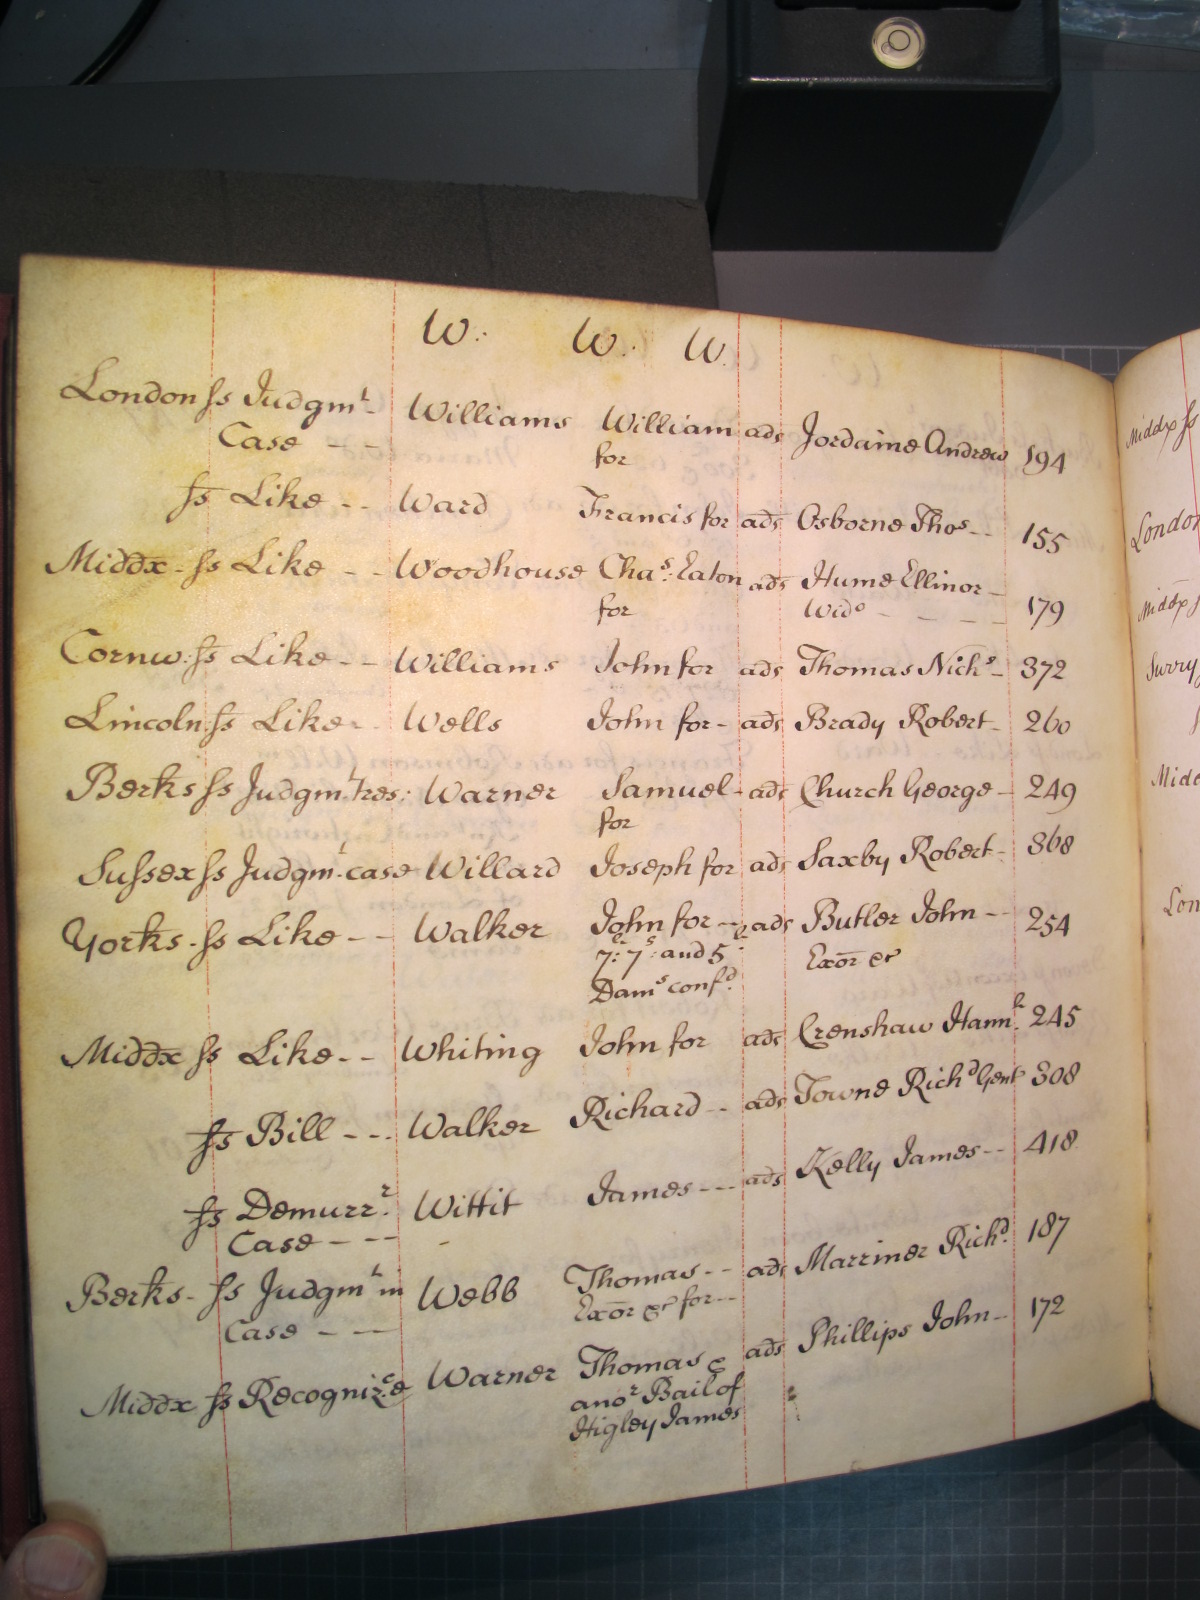 W: W: W.
London ss Judgmt Williams William ads Jordaine Andrew 194
Case -- for
ss Like -- Ward Francis for ads Osborne Thos -- 155
Middx - ss Like -- Woodhouse Chas: Eaton ads Hume Ellinor -
for Wido - - - - 179
Cornw: ss Like -- Williams John for ads Thomas Nichs - 372
Lincoln ss Like - Wells John for - ads Brady Robert - 260
Berks ss Judgmt tres: Warner Samuel - ads Church George - 249
for
Sussex ss Judgmt case Willard Joseph for ads Saxby Robert - 368
Yorks - ss Like -- Walker John for -- ads Butler John -- 254
7: 7s: and 5 Exor &c
Dams confd
Middx ss Like -- Whiting John for ads Crenshaw Hannh. 245
ss Bill --- Walker Richard -- ads Towne Richd Gent 308
ss Demurrr. Wittit James --- ads Kelly James -- 418
Case ---
Berks - ss Judgmt in Webb Thomas -- ads Marriner Richd. 187
Case -- Exor &c for --
Middx ss Recognizce Warner Thomas & ads Phillips John - 172
anor Bail of
Higley James
Middx ss
London
Middx s
Surry
Midd
Lon